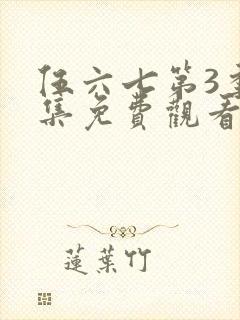 伍六七第3季
集免費觀看
蓮葉竹